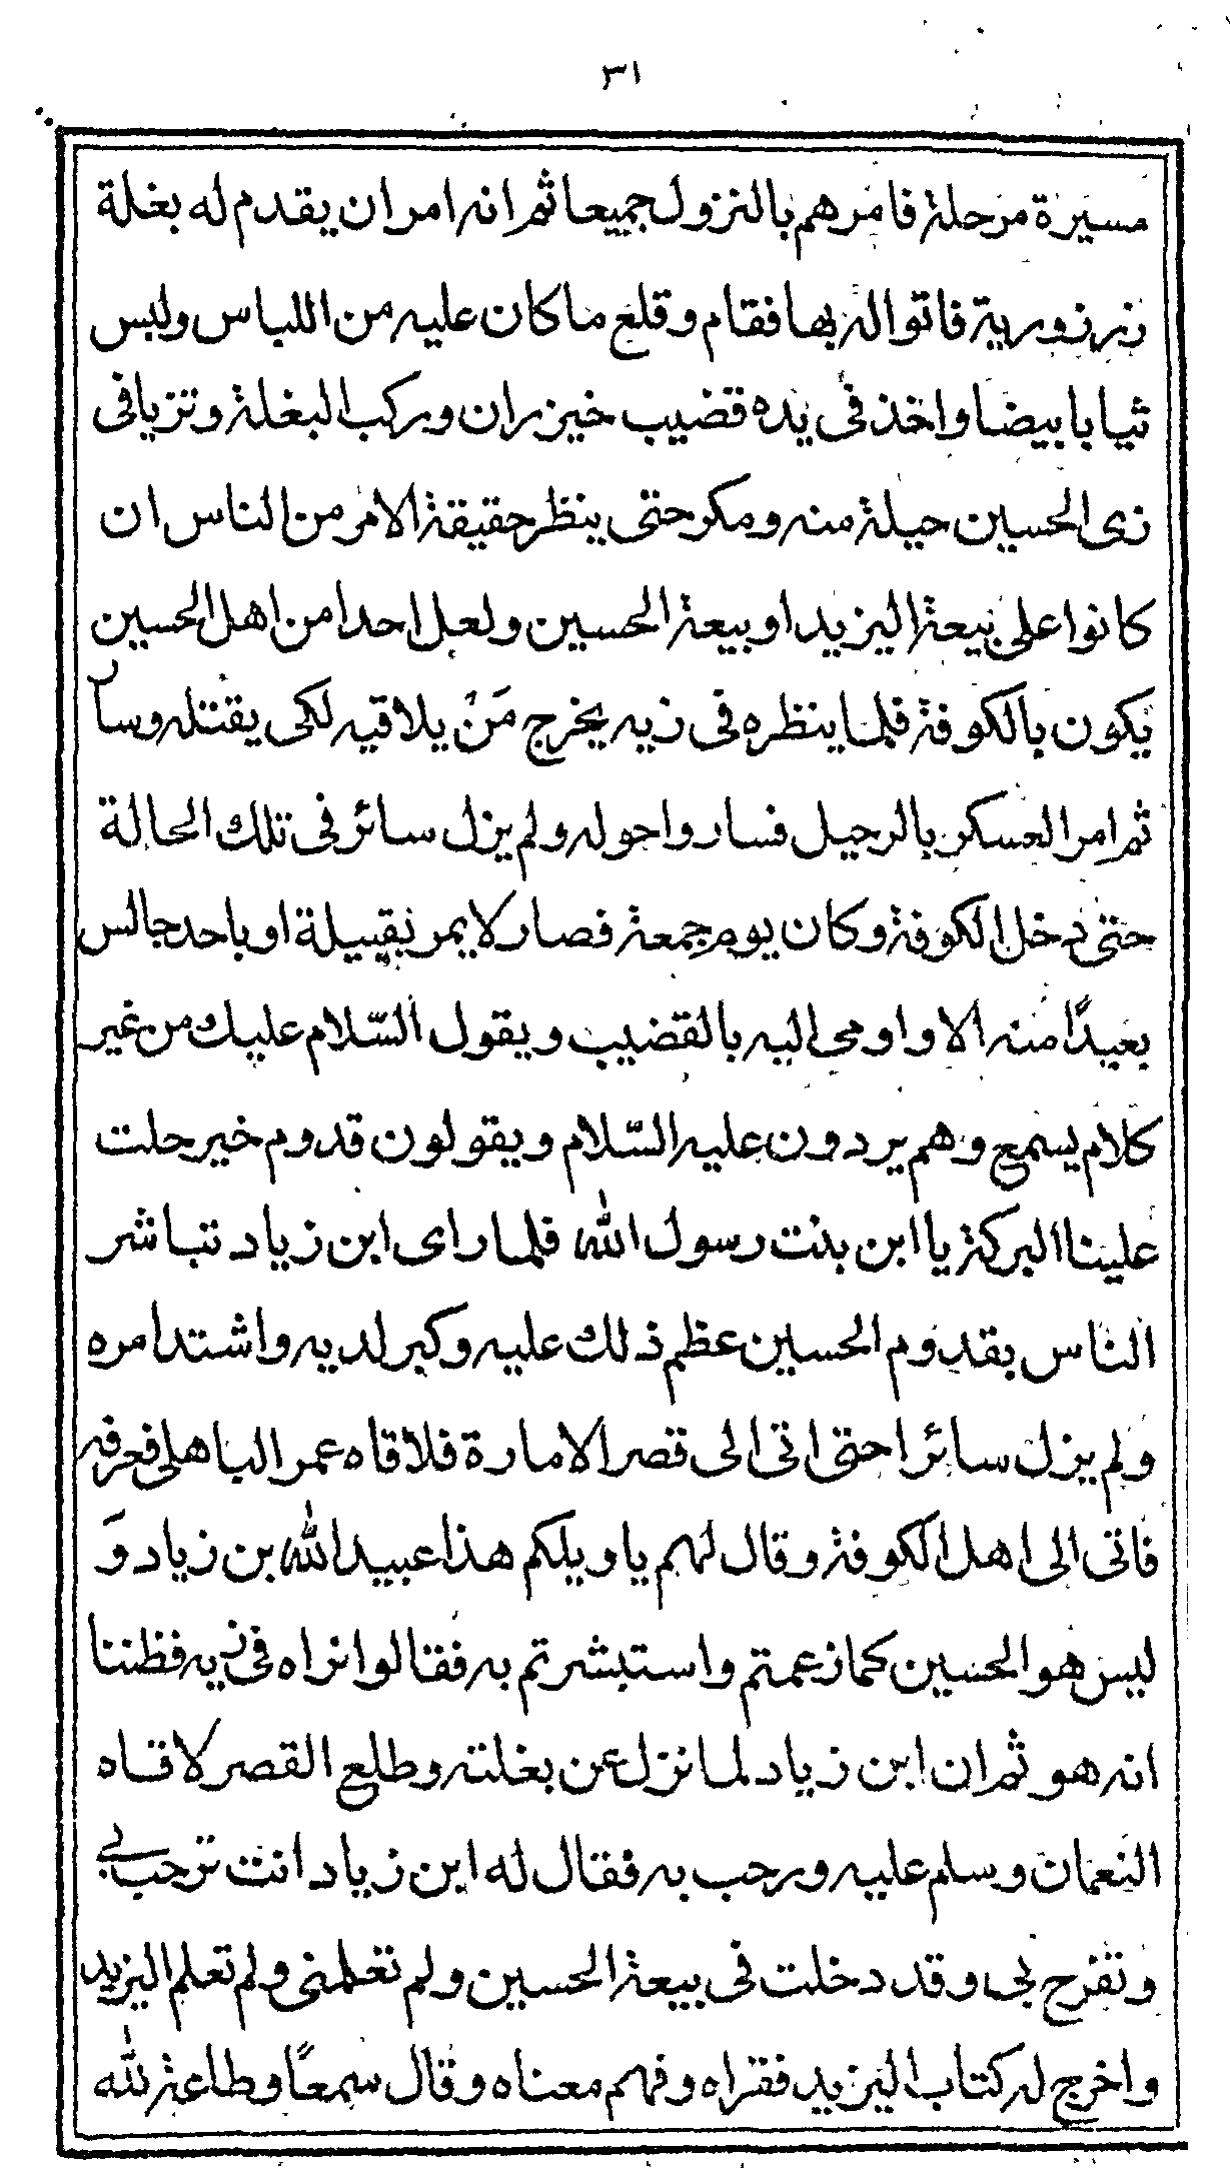 ٣١
مسيرة مرحلة فامرهم بالنزول جميعا ثم انه امر ان يقدم له بغلة
زرزورية فاتوا له بها فقام وقلع ما كان عليه من اللباس ولبس
ثيابا بيضا واخذ فى يده قضيب خيزران وركب البغلة وتزيا فى
زى الحسين حيلة منه ومكر حتى ينظر حقيقة الامر من الناس ان
كانوا على بيعة اليزيد او بيعة الحسين ولعل احدا من اهل الحسين
يكون بالكوفة فلما ينظره فى زيه يخرج مَنْ يلاقيه لكى يقتله وسار
ثم امر العسكر بالرحيل فساروا حوله ولم يزل سائر فى تلك الحالة
حتى دخل الكوفة وكان يوم جمعة فصار لا يمر بقبيلة او باحد جالس
بعيدًا منه الا واومى اليه بالقضيب ويقول السّلام عليك من غير
كلام يسمع وهم يردون عليه السّلام ويقولون قدوم خير حلت
علينا البركة يا ابن بنت رسول الله فلما راى ابن زياد تباشر
الناس بقدوم الحسين عظم ذلك عليه وكبر لديه واشتد امره
ولم يزل سائرا حتى اتى الى قصر الامارة فلاقاه عمر الباهلى فعرفه
فاتى الى اهل الكوفة وقال لهم يا ويلكم هذا عبيد الله بن زياد وَ
ليس هو الحسين كما زعمتم واستبشرتم به فقالوا نراه فى زيه فظننا
انه هو ثم ان ابن زياد لما نزل عن بغلته وطلع القصر لاقاه
النعمان وسلم عليه ورحب به فقال له ابن زياد انت ترحب بى
وتفرح بى وقد دخلت فى بيعة الحسين ولم تعلمنى ولم تعلم اليزيد
واخرج له كتاب اليزيد فقراه وفهم معناه وقال سمعًا وطاعة لله